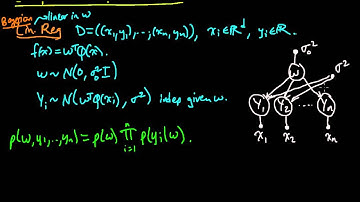 Bayesian → linear in w
Lin. Reg D = ((x₁,y₁),...,(xₙ,yₙ)), xᵢ∈ℝᵈ, yᵢ∈ℝ.
f(x) = wᵀφ(x).
w ~ N(0, σ₀²I)
Yᵢ ~ N(wᵀφ(xᵢ), σ²) indep given w.
p(w,y₁,..,yₙ) = p(w) ∏ᵢ₌₁ⁿ p(yᵢ|w).
σ₀²
w
σ²
Y₁ Y₂ ... Yₙ
x₁ x₂ xₙ